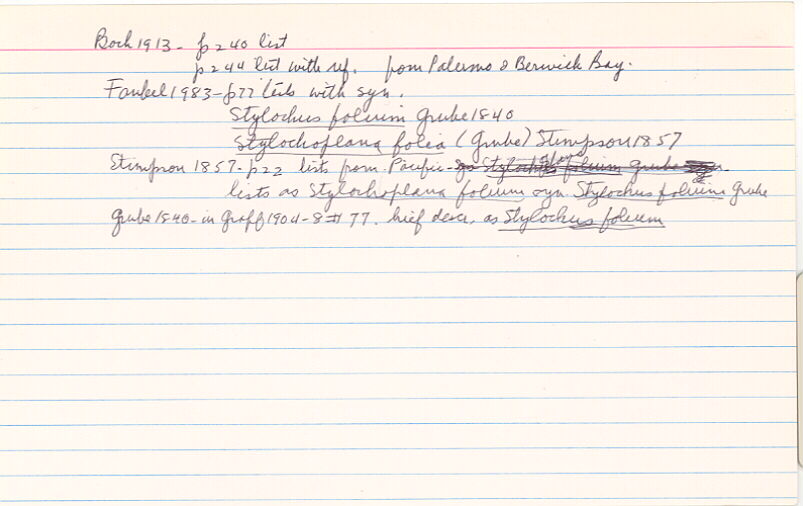 Bock 1913 - p 240 list
p 244 list with ref. from Palermo & Berwick Bay.
Faubel 1983 - p77 lists with syn.
Stylochus folium Grube 1840
Stylochoplana folia (Grube) Stimpson 1857
Stimpson 1857 - p22 lists from Pacific - Stylochus folium Grube
lists as Stylochoplana folium syn. Stylochus folium Grube
Grube 1840 - in Graff 1904-8 # 77. brief descr. as Stylochus folium